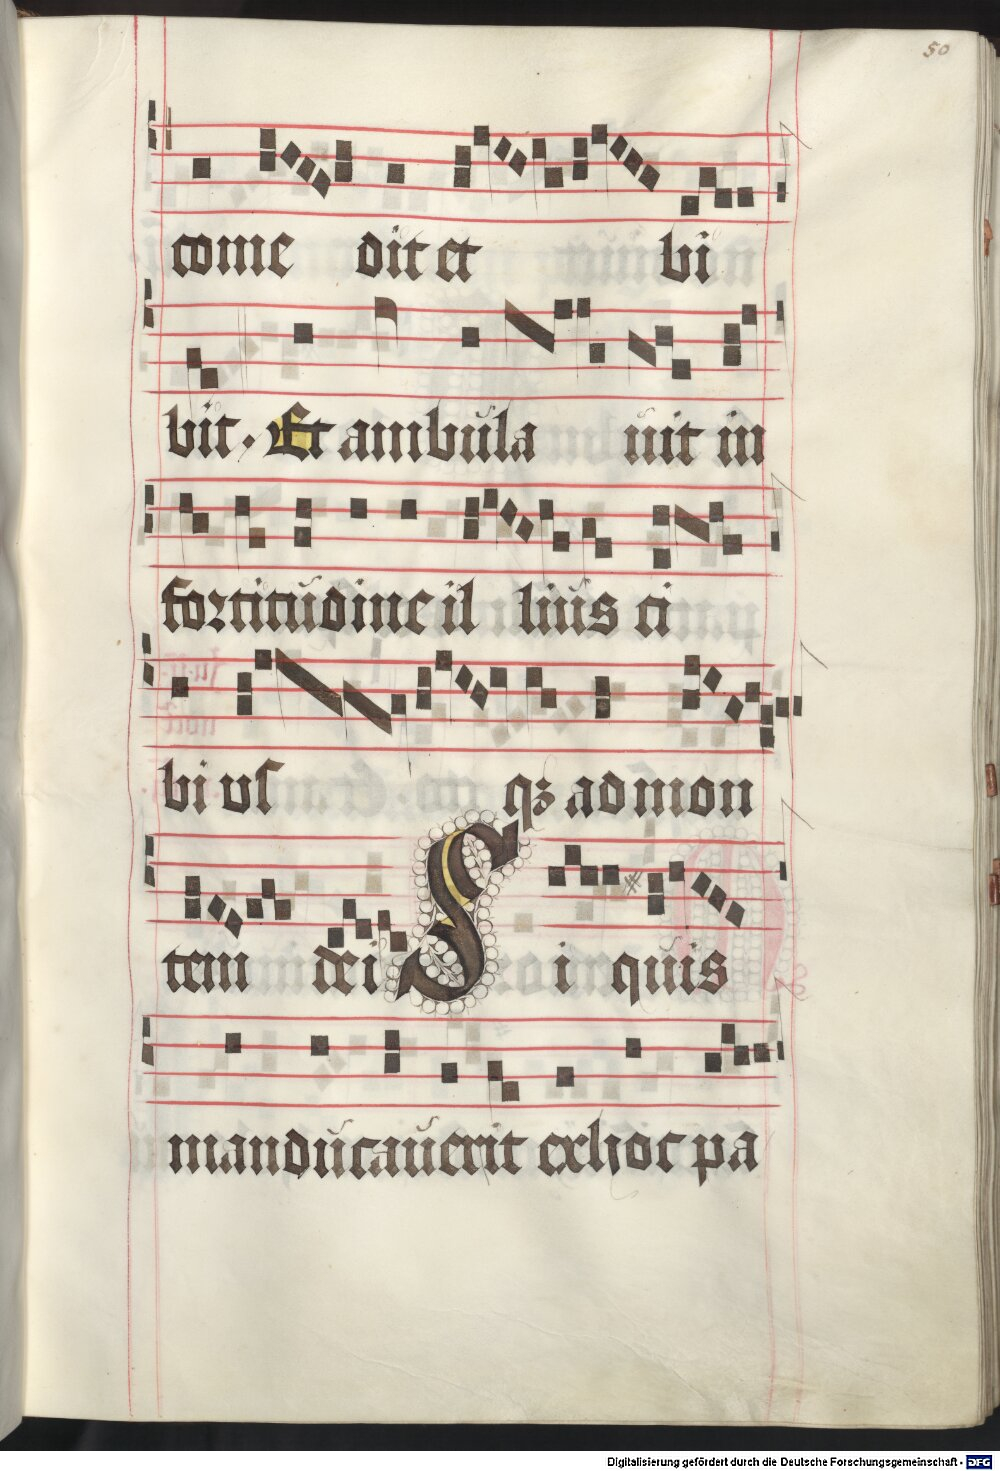 50
come dit et bi
bit. Et ambula uit in
fortitudine il lius ci
bi usq qz ad mon
tem dei Si quis
manducauerit ex hoc pa
Digitalisierung gefördert durch die Deutsche Forschungsgemeinschaft - DFG